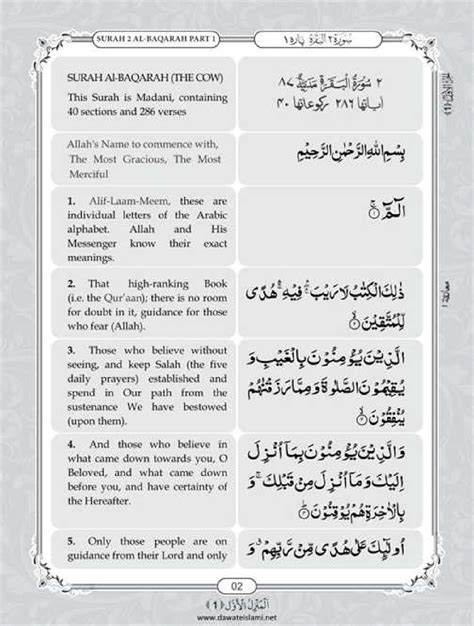 SURAH 2 AL-BAQARAH PART 1
سُوْرَةُ ٢ اَلْبَقَرَة پارہ ١
SURAH Al-BAQARAH (THE COW)
This Surah is Madani, containing
40 sections and 286 verses
٢ سُوْرَةُ الْبَقَرَةِ مَدَنِيَّةٌ ٨٧
اٰیاتھا ٢٨٦ رکوعاتھا ٤٠
Allah's Name to commence with,
The Most Gracious, The Most
Merciful
بِسْمِ اللهِ الرَّحْمٰنِ الرَّحِيْمِ
1. Alif-Laam-Meem, these are
individual letters of the Arabic
alphabet. Allah and His
Messenger know their exact
meanings.
الٓمّٓ ۚ﴿١﴾
2. That high-ranking Book
(i.e. the Qur'aan); there is no room
for doubt in it, guidance for those
who fear (Allah).
ذٰلِكَ الْكِتٰبُ لَا رَيْبَ ۛ فِيْهِ ۛ هُدًى
لِّلْمُتَّقِيْنَ ۙ﴿٢﴾
3. Those who believe without
seeing, and keep Salah (the five
daily prayers) established and
spend in Our path from the
sustenance We have bestowed
(upon them).
الَّذِيْنَ يُؤْمِنُوْنَ بِالْغَيْبِ وَ
يُقِيْمُوْنَ الصَّلٰوةَ وَمِمَّا رَزَقْنٰهُمْ
يُنْفِقُوْنَ ۙ﴿٣﴾
4. And those who believe in
what came down towards you, O
Beloved, and what came down
before you, and have certainty of
the Hereafter.
وَالَّذِيْنَ يُؤْمِنُوْنَ بِمَاۤ اُنْزِلَ
اِلَيْكَ وَمَاۤ اُنْزِلَ مِنْ قَبْلِكَ ۚ وَ
بِالْاٰخِرَةِ هُمْ يُوْقِنُوْنَ ؕ﴿٤﴾
5. Only those people are on
guidance from their Lord and only
اُولٰٓئِكَ عَلٰى هُدًى مِّنْ رَّبِّهِمْ ۗ وَ
02
اَلْمَنْزِلُ الْاَوَّلُ ﴿1﴾
www.dawateislami.net